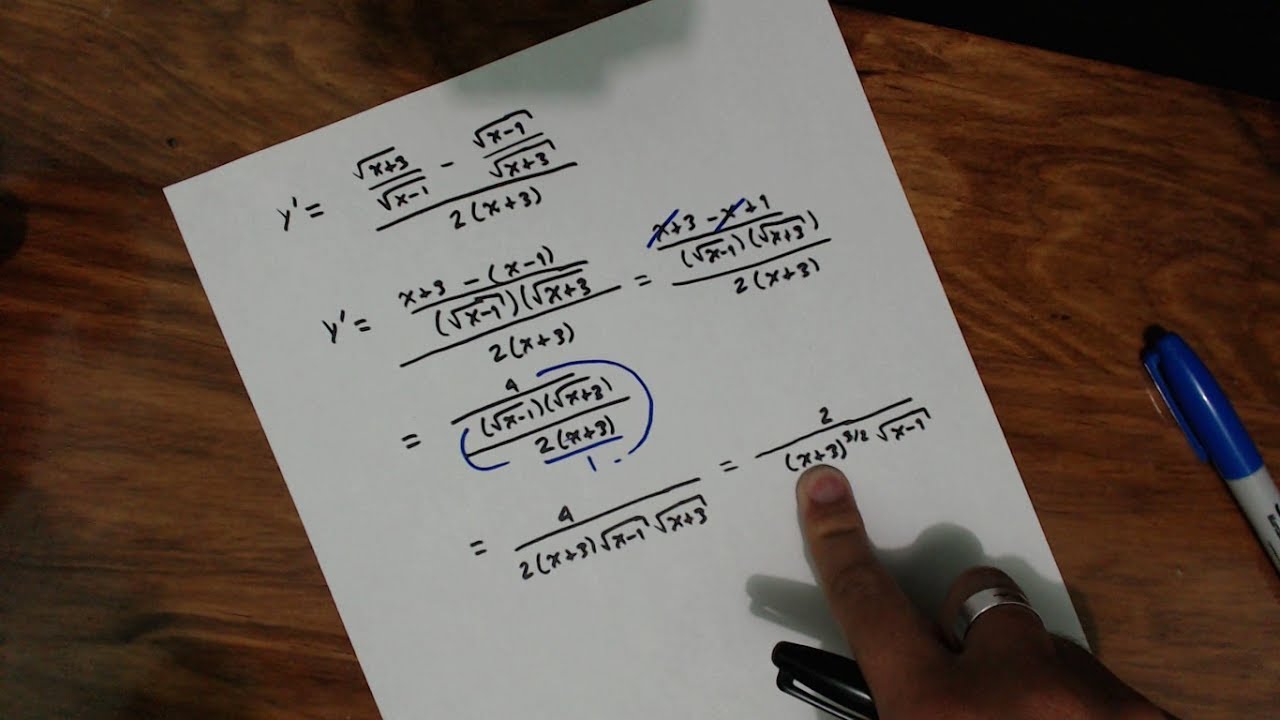 y' = (√(x+3)/√(x-1) - √(x-1)/√(x+3)) / 2(x+3)
y' = ((x+3 - (x-1)) / (√(x-1))(√(x+3)) / 2(x+3) = ((x+3 - x+1) / (√(x-1))(√(x+3))) / 2(x+3)
= (4 / (√(x-1))(√(x+3))) / (2(x+3) / 1)
= 4 / 2(x+3)√(x-1)√(x+3) = 2 / (x+3)^(3/2)√(x-1)